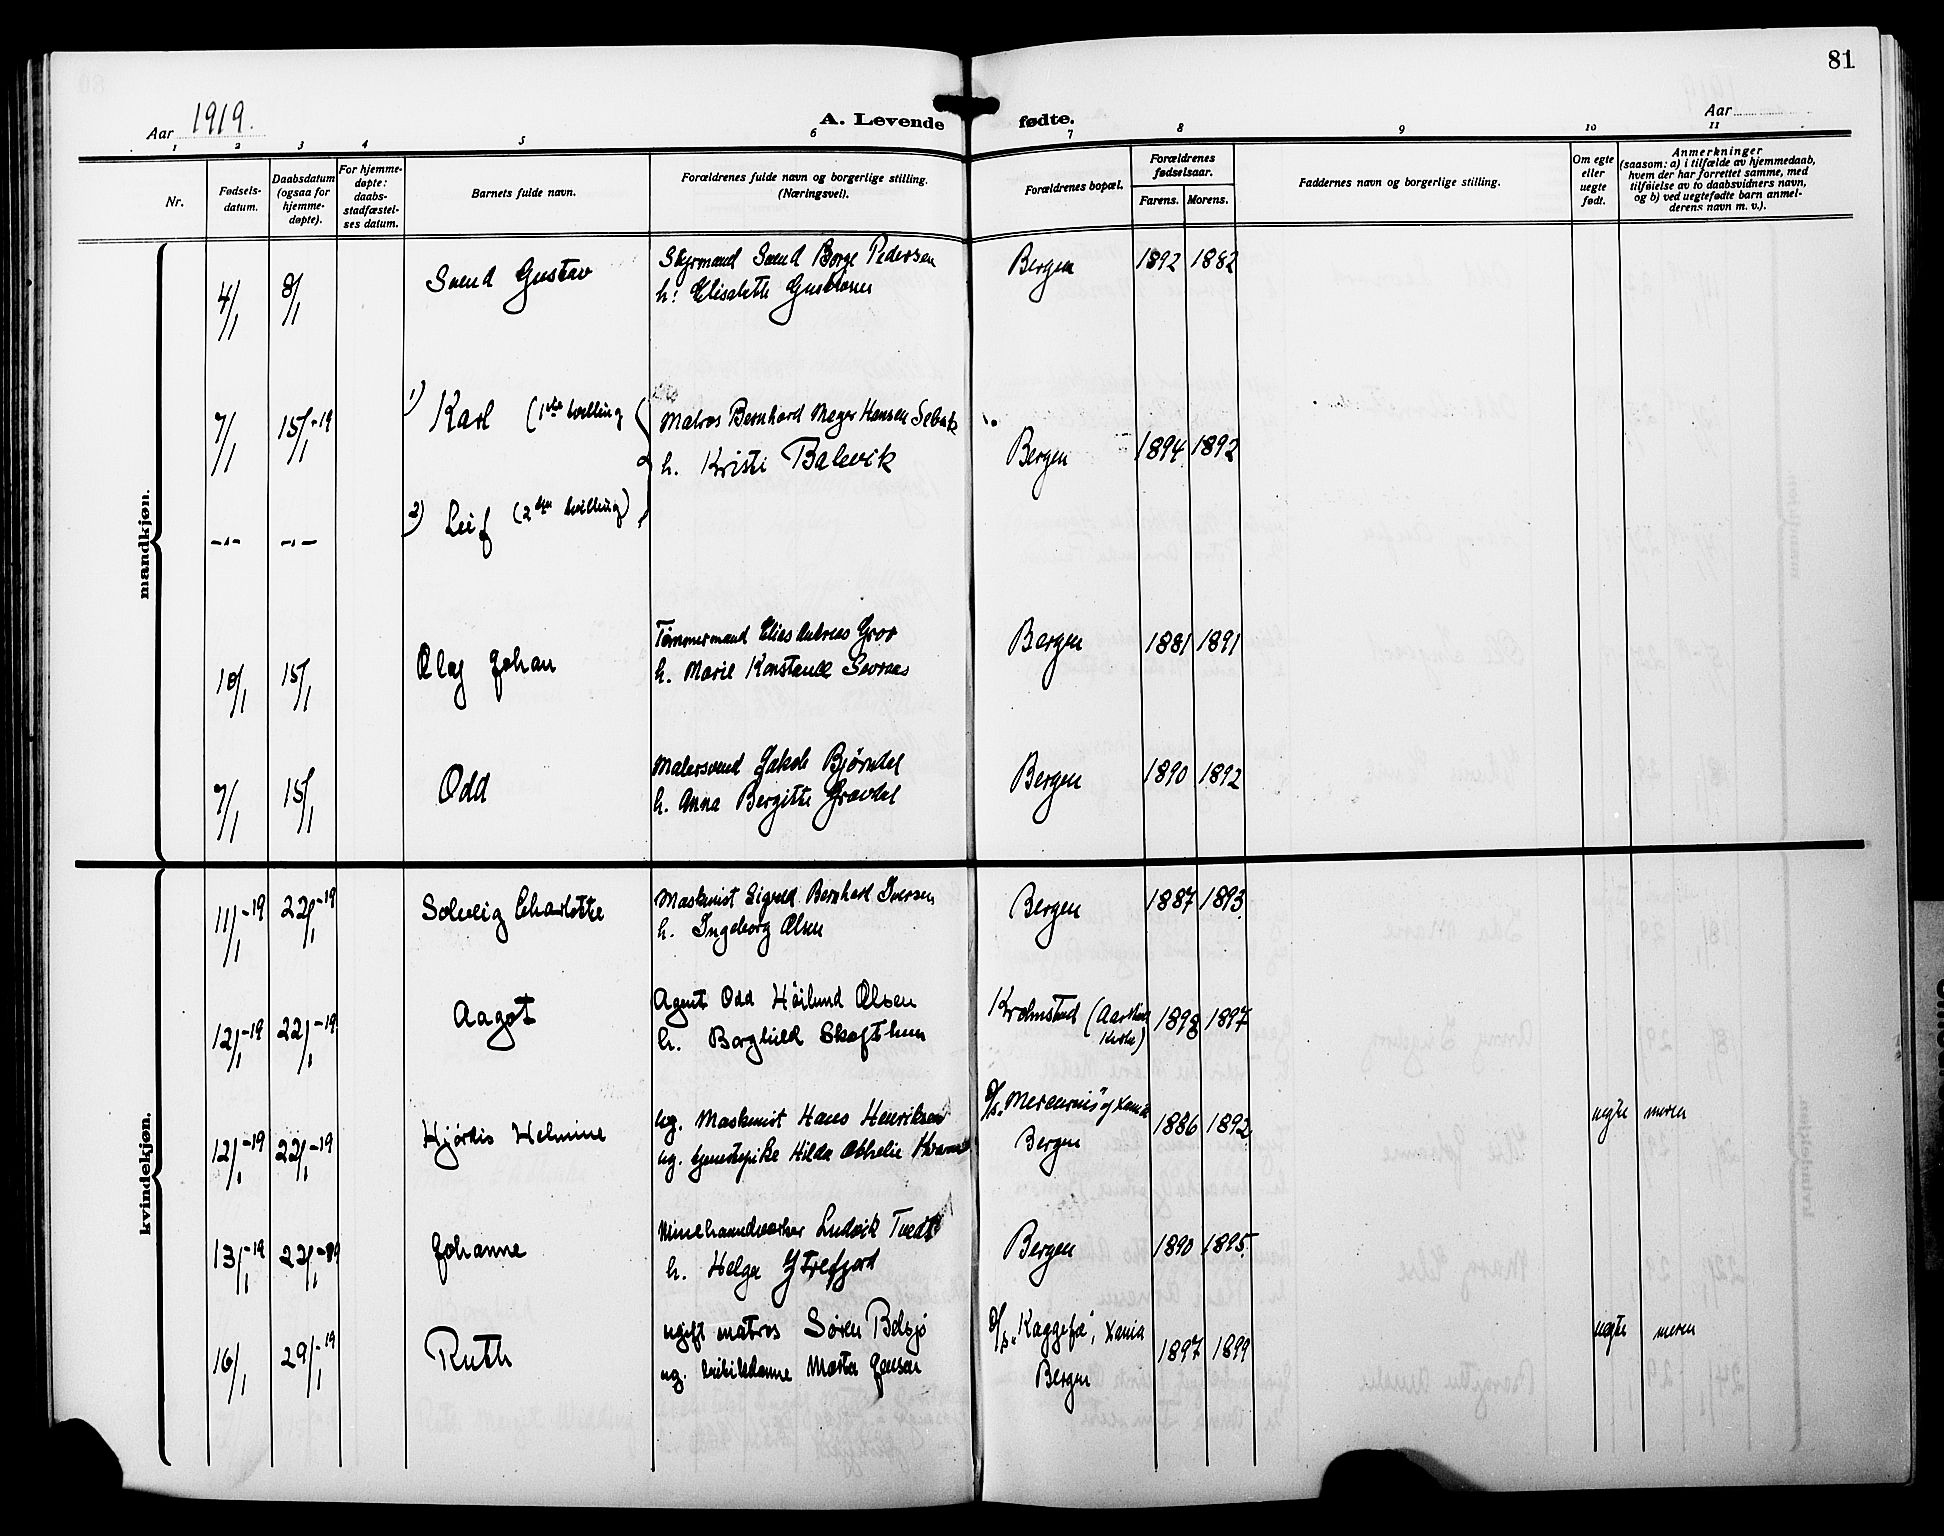 81
Aar 1919.
A. Levende fødte.
Aar
1 2 3 4 5 6 7 8 9 10 11
Nr.
Fødsels-
datum.
Daabsdatum
(ogsaa for
hjemme-
døpte).
For hjemme-
døpte:
daabs-
stadfæstel-
ses datum.
Barnets fulde navn.
Forældrenes fulde navn og borgerlige stilling.
(Næringsvei).
Forældrenes bopæl.
Forældrenes
fødselsaar.
Farens. Morens.
Faddernes navn og borgerlige stilling.
Om egte
eller
uegte
født.
Anmerkninger
(saasom: a) i tilfælde av hjemmedaab,
hvem der har forrettet samme, med
tilføielse av to daabsvidners navn,
og b) ved uegtefødte barn anmel-
derens navn m. v.).
mandkjøn.
4/1 8/1 Svend Gustav
Styrmand Svend Borge Pedersen
h: Elisabeth
Bergen 1892 1882
7/1 15/1-19 1) Karl (1ste tvilling)
Matros Bernhard Meyer Hansen
h. Kristi Balevik
Bergen 1894 1892
-"- -"- 2) Leif (2den tvilling)
10/1 15/1 Olaf Johan
Tømmermand Elias Andreas Grov
h. Marie Konstanse
Bergen 1881 1891
7/1 15/1 Odd
Malersvend Jakob Bjørndal
h. Anna Bergitte Gravdal
Bergen 1890 1892
kvindekjøn.
11/1-19 22/1-19 Solveig Charlotte
Maskinist Sigurd Bernhard Iversen
h. Ingeborg Olsen
Bergen 1887 1893
12/1-19 22/1-19 Aagot
Agent Odd Høilund Olsen
h. Borghild Skofthun
Kronstad (Aarstad
Kirke) 1898 1897
12/1-19 22/1-19 Hjørdis Helmine
ug. Maskinist Hans Henriksen
ug. tjenestepike Hilda Othelie
D/S. "Mercurius" af Xania
Bergen 1886 1892
uegte moren
13/1-19 22/1-19 Johanne
Minehaandverker Ludvik Tvedt
h. Helga Ytrefjord
Bergen 1890 1895.
16/1 29/1-19 Ruth
ugift matros Søren Belsjø
ug. Marta Jensen
D/S. "Kaggefos", Xania
Bergen 1897 1899
uegte moren